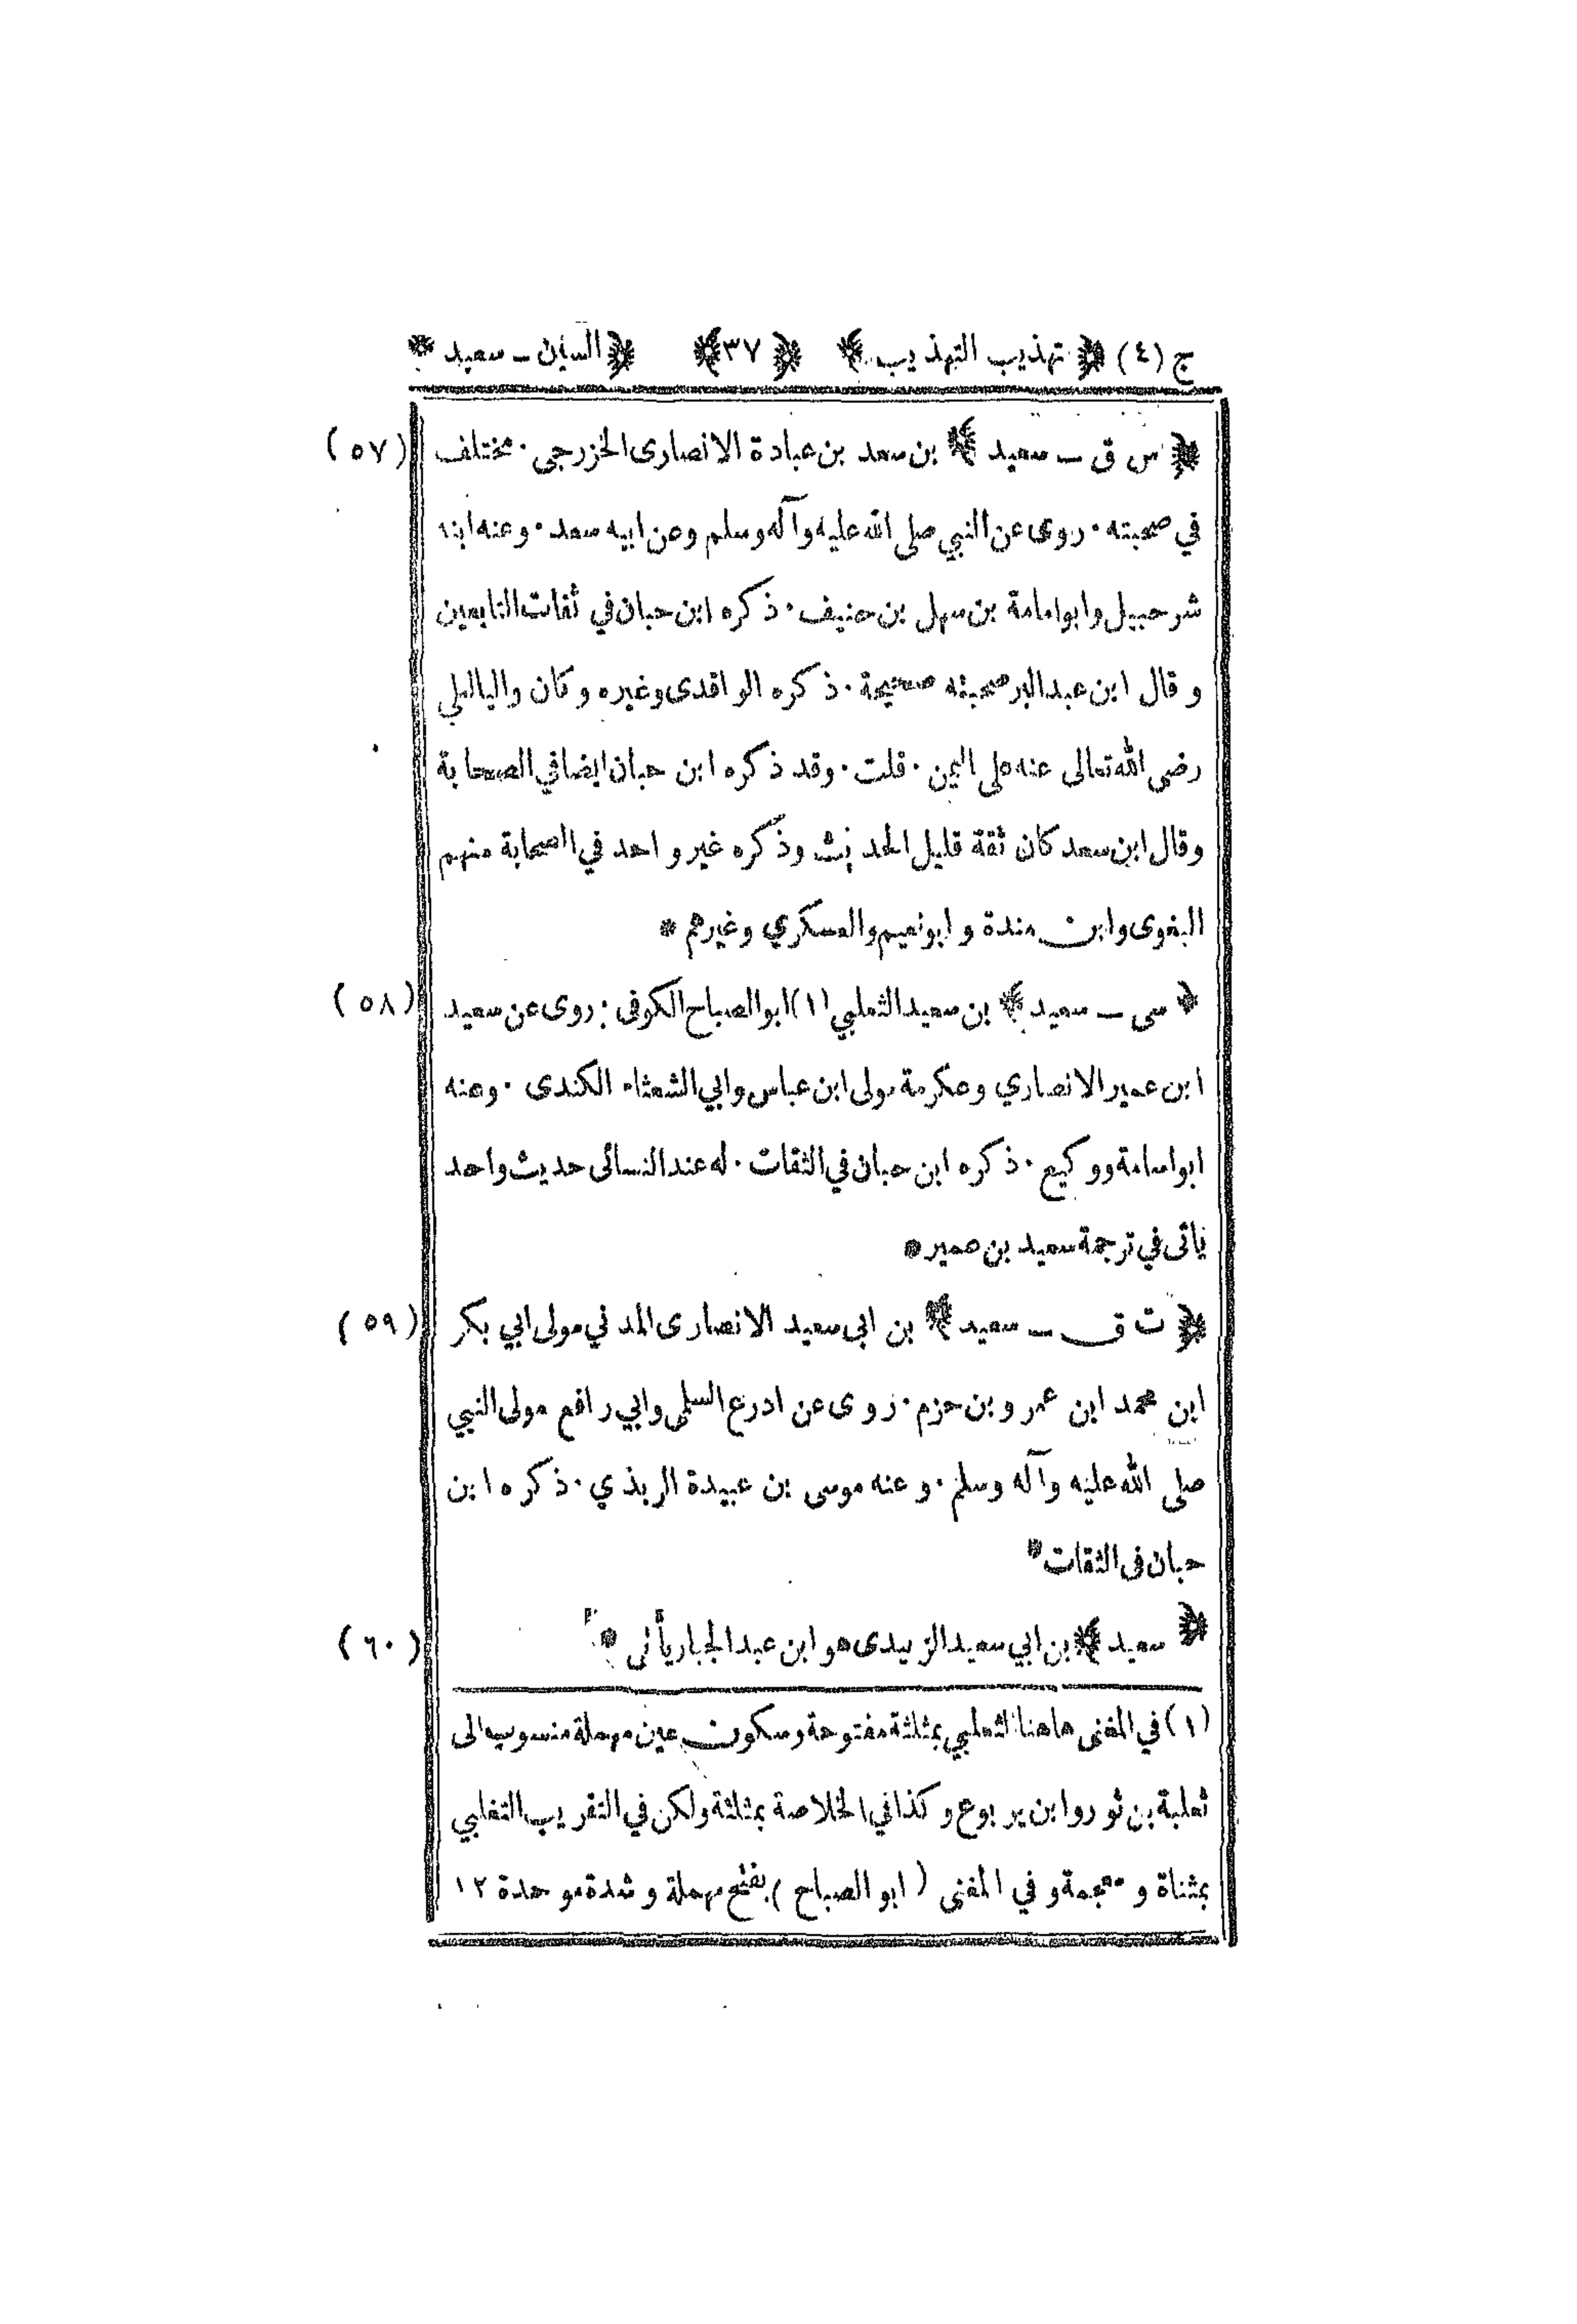 ج (٤) ﴿ تهذيب التهذيب ﴾ ﴿ ٣٧ ﴾ ﴿ السين ـ سعيد *
﴿ س ق ـ سعيد ﴾ بن سعد بن عبادة الانصارى الخزرجى . مختلف (٥٧)
في صحبته . روى عن النبي صلى الله عليه وآله وسلم وعن ابيه سعد . وعنه ابنه
شرحبيل وابوامامة بن سهل بن حنيف . ذكره ابن حبان في ثقات التابعين
وقال ابن عبدالبر صحبته صحيحة . ذكره الواقدى وغيره وكان واليا لعلي
رضى الله تعالى عنه على اليمن . قلت . وقد ذكره ابن حبان ايضا في الصحابة
وقال ابن سعد كان ثقة قليل الحديث وذكره غير واحد في الصحابة منهم
البغوى وابن مندة وابونعيم والعسكري وغيرهم *
﴿ سى ـ سعيد ﴾ بن سعيد الثعلبي (١) ابوالصباح الكوفى . روى عن سعيد (٥٨)
ابن عمير الانصاري وعكرمة مولى ابن عباس وابي الشعثاء الكندى . وعنه
ابواسامة ووكيع . ذكره ابن حبان في الثقات . له عند النسائى حديث واحد
يأتى في ترجمة سعيد بن عمير *
﴿ ت ق ـ سعيد ﴾ بن ابى سعيد الانصارى المدني مولى ابي بكر (٥٩)
ابن محمد ابن عمرو بن حزم . روى عن ادرع السلمى وابي رافع مولى النبي
صلى الله عليه وآله وسلم . وعنه موسى بن عبيدة الربذي . ذكره ابن
حبان فى الثقات *
﴿ سعيد ﴾ بن ابي سعيد الزبيدى هو ابن عبدالجبار يأتى * (٦٠)
(١) في المغنى هاهنا الثعلبي بمثلثة مفتوحة وسكون عين مهملة منسوب الى
ثعلبة بن ثور وابن يربوع وكذا في الخلاصة بمثلثة ولكن في التقريب التغلبي
بمثناة ومعجمة وفي المغنى ( ابو الصباح ) بفتح مهملة وشدة موحدة ١٢